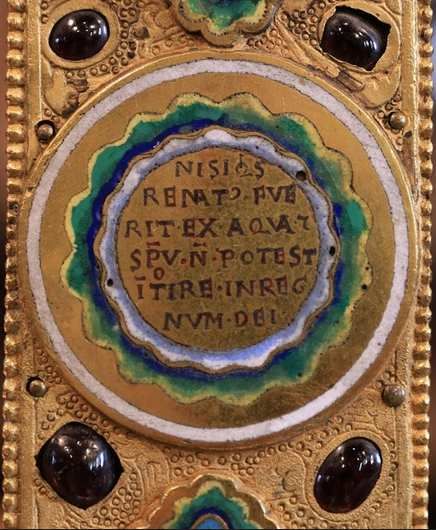 NISI Q̇S
RENATꝰ·FVE
RIT·EX·AQVA⁊
SP̅V·N̅·POTEST
I̅TͦIRE·INREG
NVM·DEI·